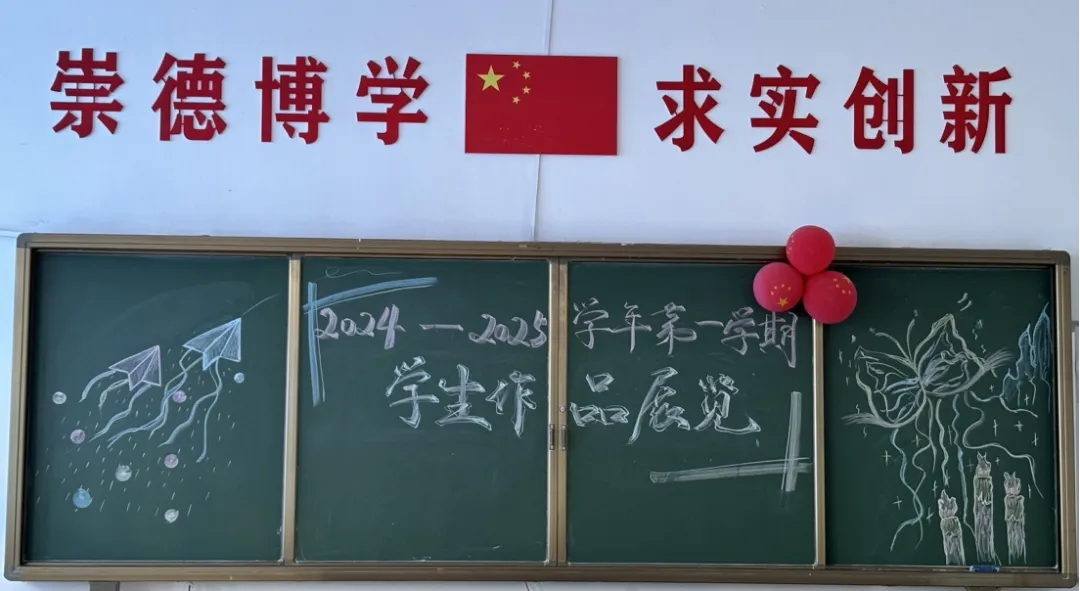 崇德博学 求实创新
2024—2025学年第一学期
学生作品展览